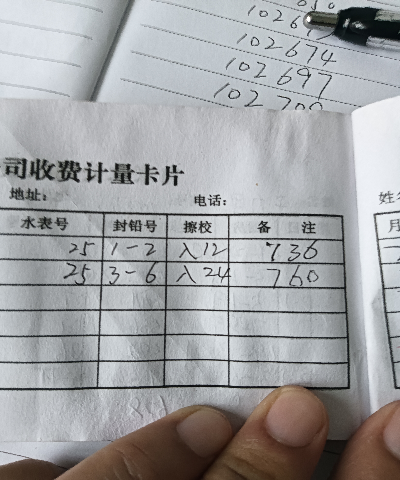 102674
102697
司收费计量卡片
地址: 电话:
水表号 封铅号 擦校 备 注
25 1-2 入12 736
25 3-6 入24 760